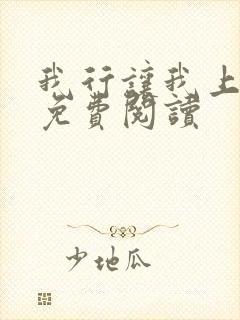 我行讓我上
免費閱讀
少地瓜